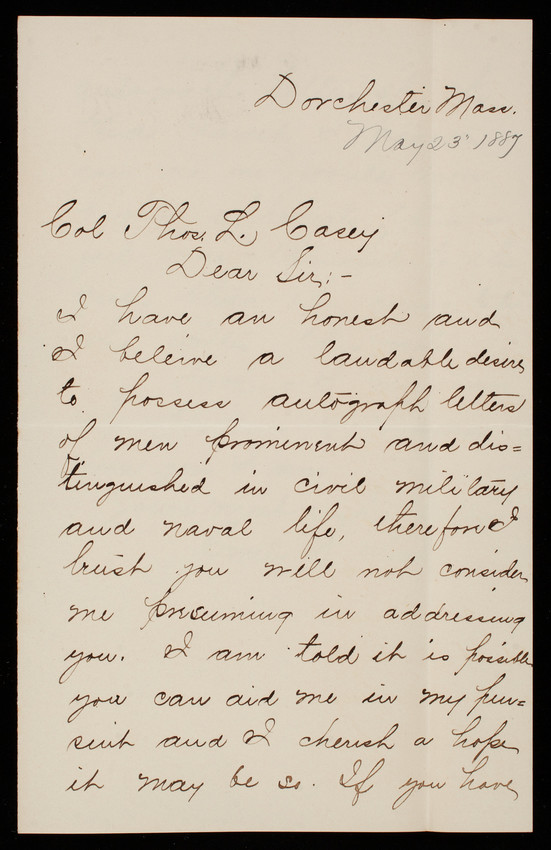 Dorchester Mass.
May 23 1887
Col Thos. L. Casey
Dear Sir:-
I have an honest and
I beleive a laudable desire
to possess autograph letters
of men prominent and dis=
tinguished in civil military
and naval life, therefore I
trust you will not consider
me presuming in addressing
you. I am told it is possible
you can aid me in my pur=
suit and I cherish a hope
it may be so. If you have